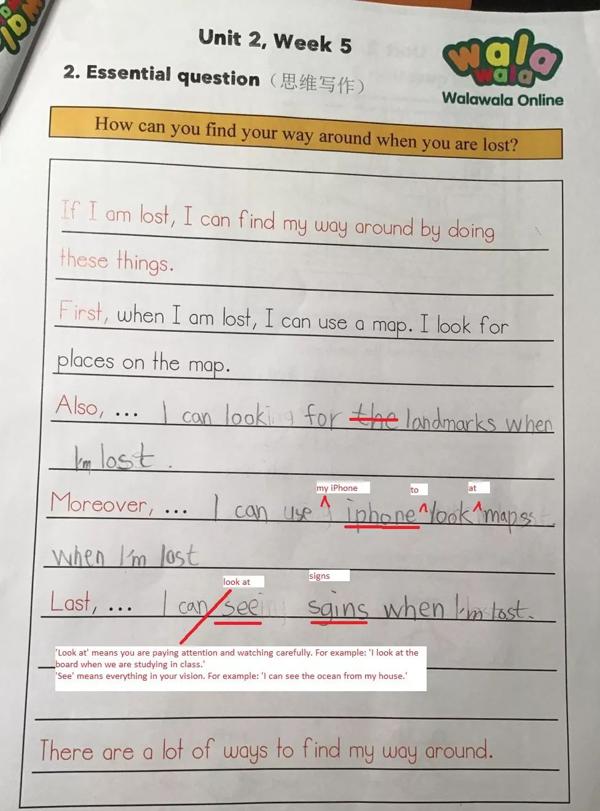 Unit 2, Week 5
wala
wala
Walawala Online
2. Essential question（思维写作）
How can you find your way around when you are lost?
If I am lost, I can find my way around by doing
these things.
First, when I am lost, I can use a map. I look for
places on the map.
Also, ... I can looking for the landmarks when
I'm lost.
my iPhone to at
Moreover, ... I can use iphone look mapss
when I'm lost
look at signs
Last, ... I can see sgins when I'm lost.
'Look at' means you are paying attention and watching carefully. For example: 'I look at the
board when we are studying in class.'
'See' means everything in your vision. For example: 'I can see the ocean from my house.'
There are a lot of ways to find my way around.